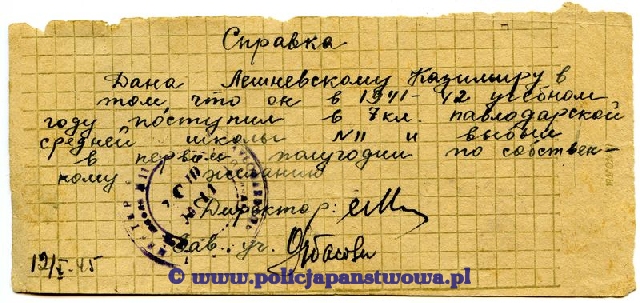 Справка
Дана Лешневскому Казимиру в
том, что он в 1941-42 учебном
году поступил в 7кл. павлодарской
средней школы №11 и выбыл
в первом полугодии по собствен-
ному желанию
Директор:
Зав. уч.
12/I 45
© www.policjapanstwowa.pl